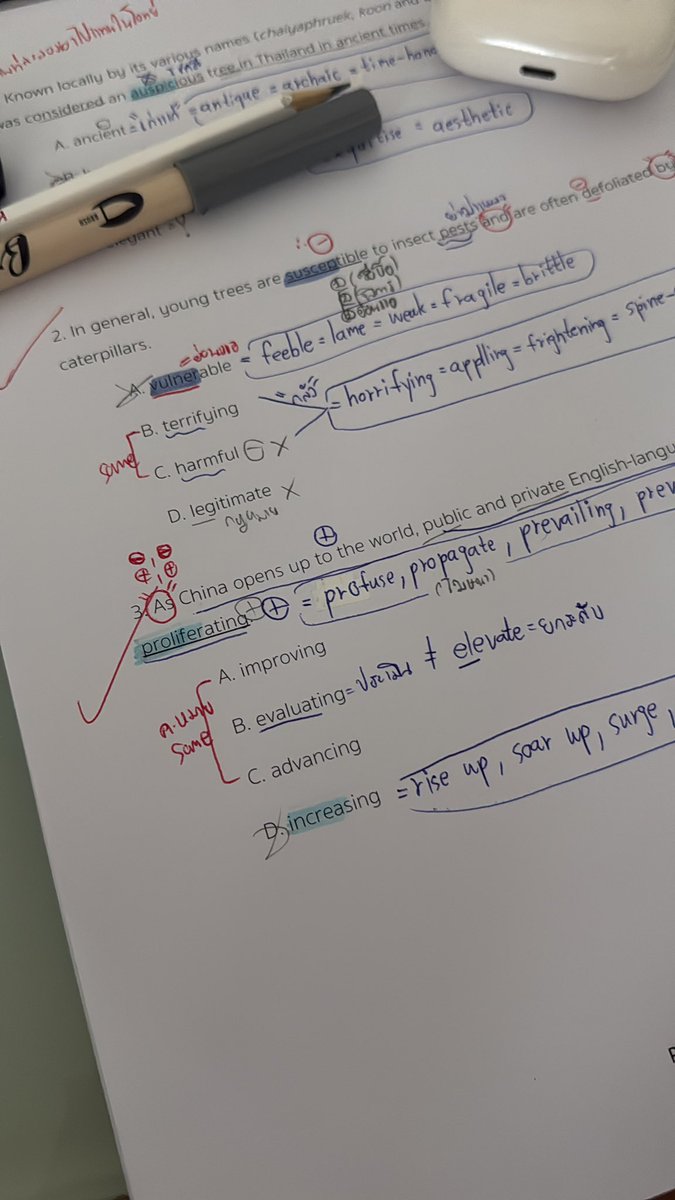 Known locally by its various names (chaiyaphruek, koon and
was considered an auspicious tree in Thailand in ancient times.
A. ancient = เก่าแก่ = antique = archaic = time-hono
= aesthetic
2. In general, young trees are susceptible to insect pests and are often defoliated by
caterpillars.
A. vulnerable = อ่อนแอ = feeble = lame = weak = fragile = brittle
B. terrifying
= กลัว = horrifying = appling = frightening = spine-
same
C. harmful ⊖ X
D. legitimate X
กฎหมาย
3. As China opens up to the world, public and private English-langu
proliferating ⊕ = profuse, propagate, prevailing, prev
A. improving
same
B. evaluating = ประเมิน ≠ elevate = ยกระดับ
C. advancing
D. increasing = rise up, soar up, surge,